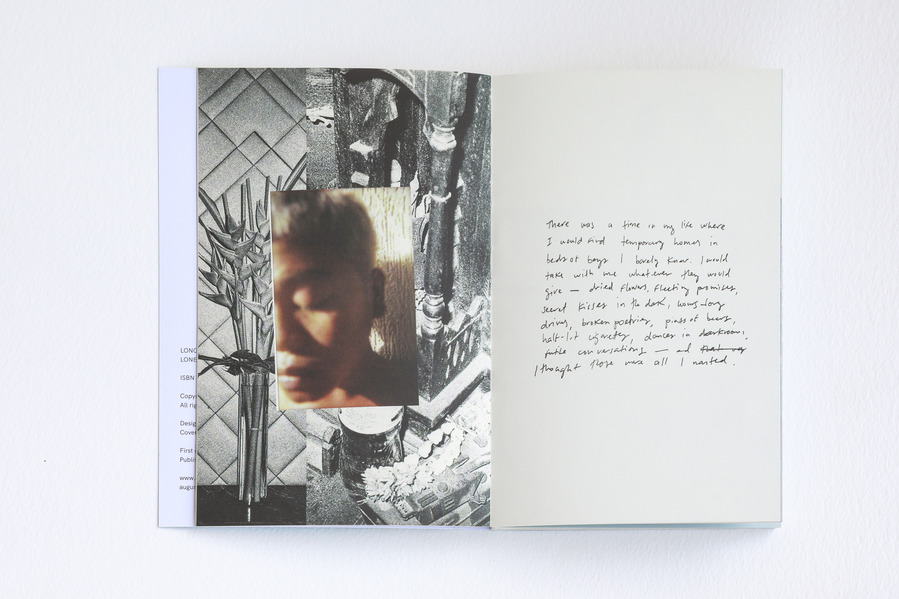 LONG
LONE
ISBN
Copy
All rig
Desig
Cove
First
Publi
www.
augu
There was a time in my life where
I would find temporary homes in
beds of boys I barely knew. I would
take with me whatever they would
give — dried flowers, fleeting promises,
secret kisses in the dark, hours-long
drives, broken poetries, pints of beers,
half-lit cigarettes, dances in darkrooms,
futile conversations — and that was
I thought those were all I wanted.